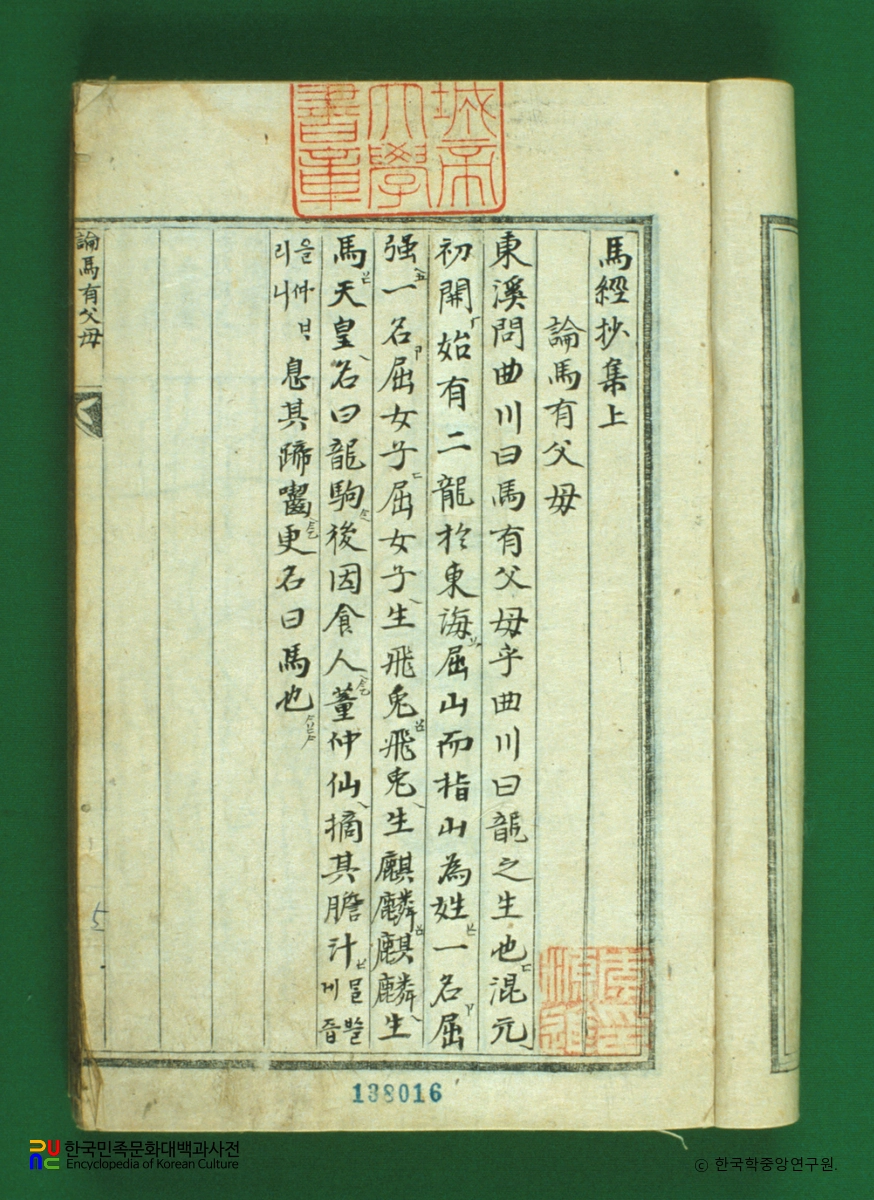 城帝
大學
書章
馬經抄集上
論馬有父母
東溪問曲川曰馬有父母乎曲川曰龍之生也混元
初開始有二龍於東海屈山而指山為姓一名屈
强一名屈女子屈女子生飛兎飛兎生麒麟麒麟生
馬天皇名曰龍駒後因食人董仲仙摘其膽汁
게즙
올
리니
息其蹄嚙更名曰馬也
論馬有父母
5
138016
한국민족문화대백과사전
Encyclopedia of Korean Culture
ⓒ 한국학중앙연구원.